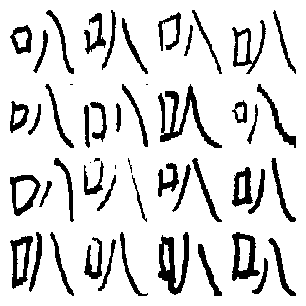 叭叭叭叭
叭叭叭叭
叭叭叭叭
叭叭叭叭